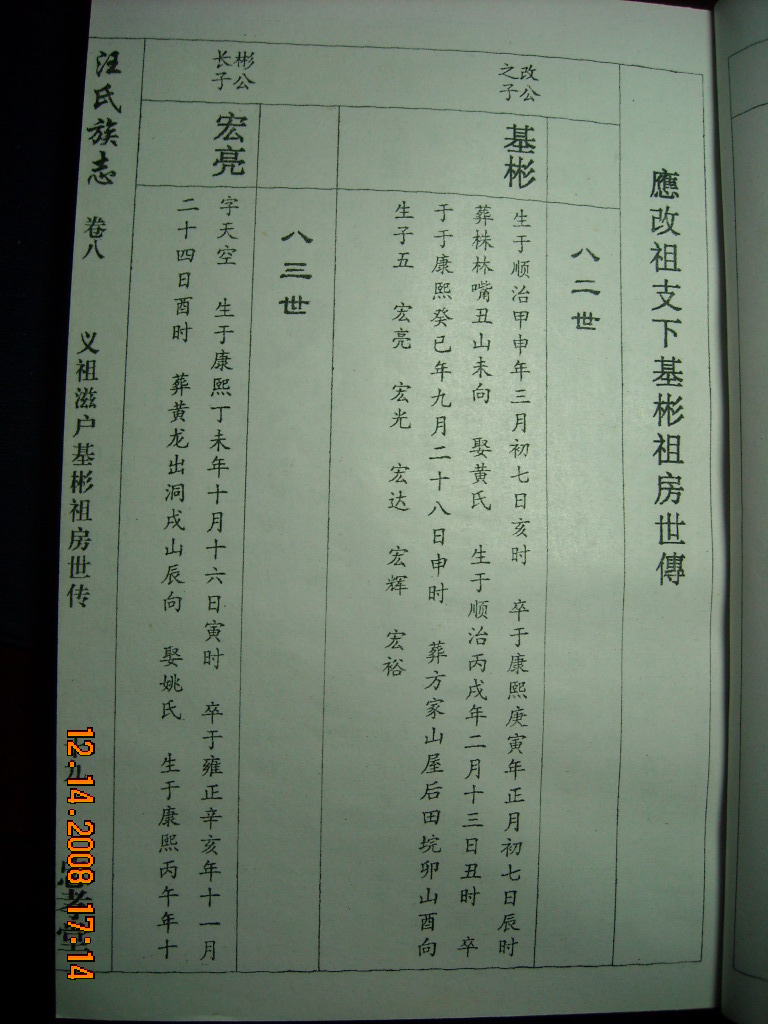 應改祖支下基彬祖房世傳
八二世
改公
之子
基彬
生于顺治甲申年三月初七日亥时 卒于康熙庚寅年正月初七日辰时
葬株林嘴丑山未向 娶黄氏 生于顺治丙戌年二月十三日丑时 卒
于于康熙癸巳年九月二十八日申时 葬方家山屋后田垸卯山酉向
生子五 宏亮 宏光 宏达 宏辉 宏裕
八三世
彬公
长子
宏亮
字天空 生于康熙丁未年十月十六日寅时 卒于雍正辛亥年十一月
二十四日酉时 葬黄龙出洞戌山辰向 娶姚氏 生于康熙丙午年十
汪氏族志 卷八 义祖滋户基彬祖房世传
九
忠孝堂
12.14.2008 17:14